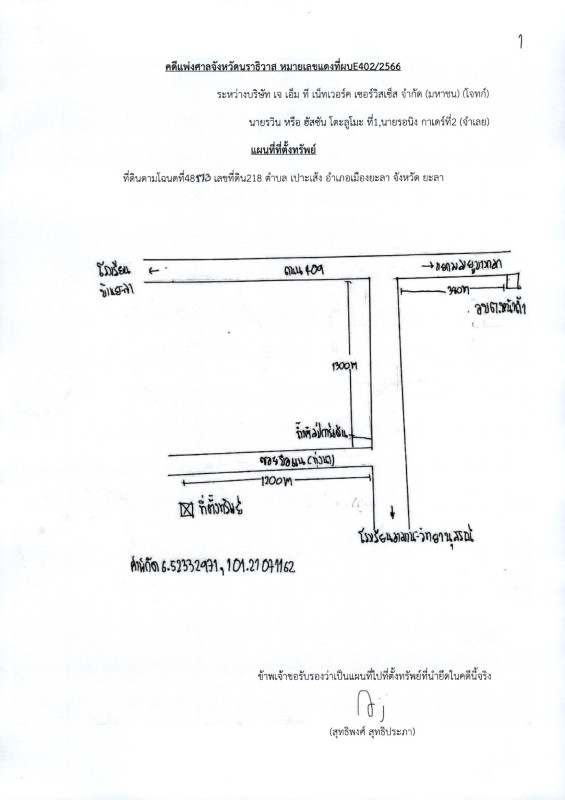 1
คดีแพ่งศาลจังหวัดนราธิวาส หมายเลขแดงที่ผบE402/2566
ระหว่างบริษัท เจ เอ็ม ที เน็ทเวอร์ค เซอร์วิสเซ็ส จำกัด (มหาชน) (โจทก์)
นายรวิน หรือ ฮัสซัน โตะลูโมะ ที่1,นายรอนิง กาเดร์ที่2 (จำเลย)
แผนที่ที่ตั้งทรัพย์
ที่ดินตามโฉนดที่48573 เลขที่ดิน218 ตำบล เปาะเส้ง อำเภอเมืองยะลา จังหวัด ยะลา
โรงเรียน ← ถนน 409 →
380m
อบต.หน้าถ้ำ
1300m
1200m
ที่ตั้งทรัพย์
ค่าพิกัด 6.52332971, 101.21071162
ข้าพเจ้าขอรับรองว่าเป็นแผนที่ไปที่ตั้งทรัพย์ที่นำยึดในคดีนี้จริง
(สุทธิพงศ์ สุทธิประภา)